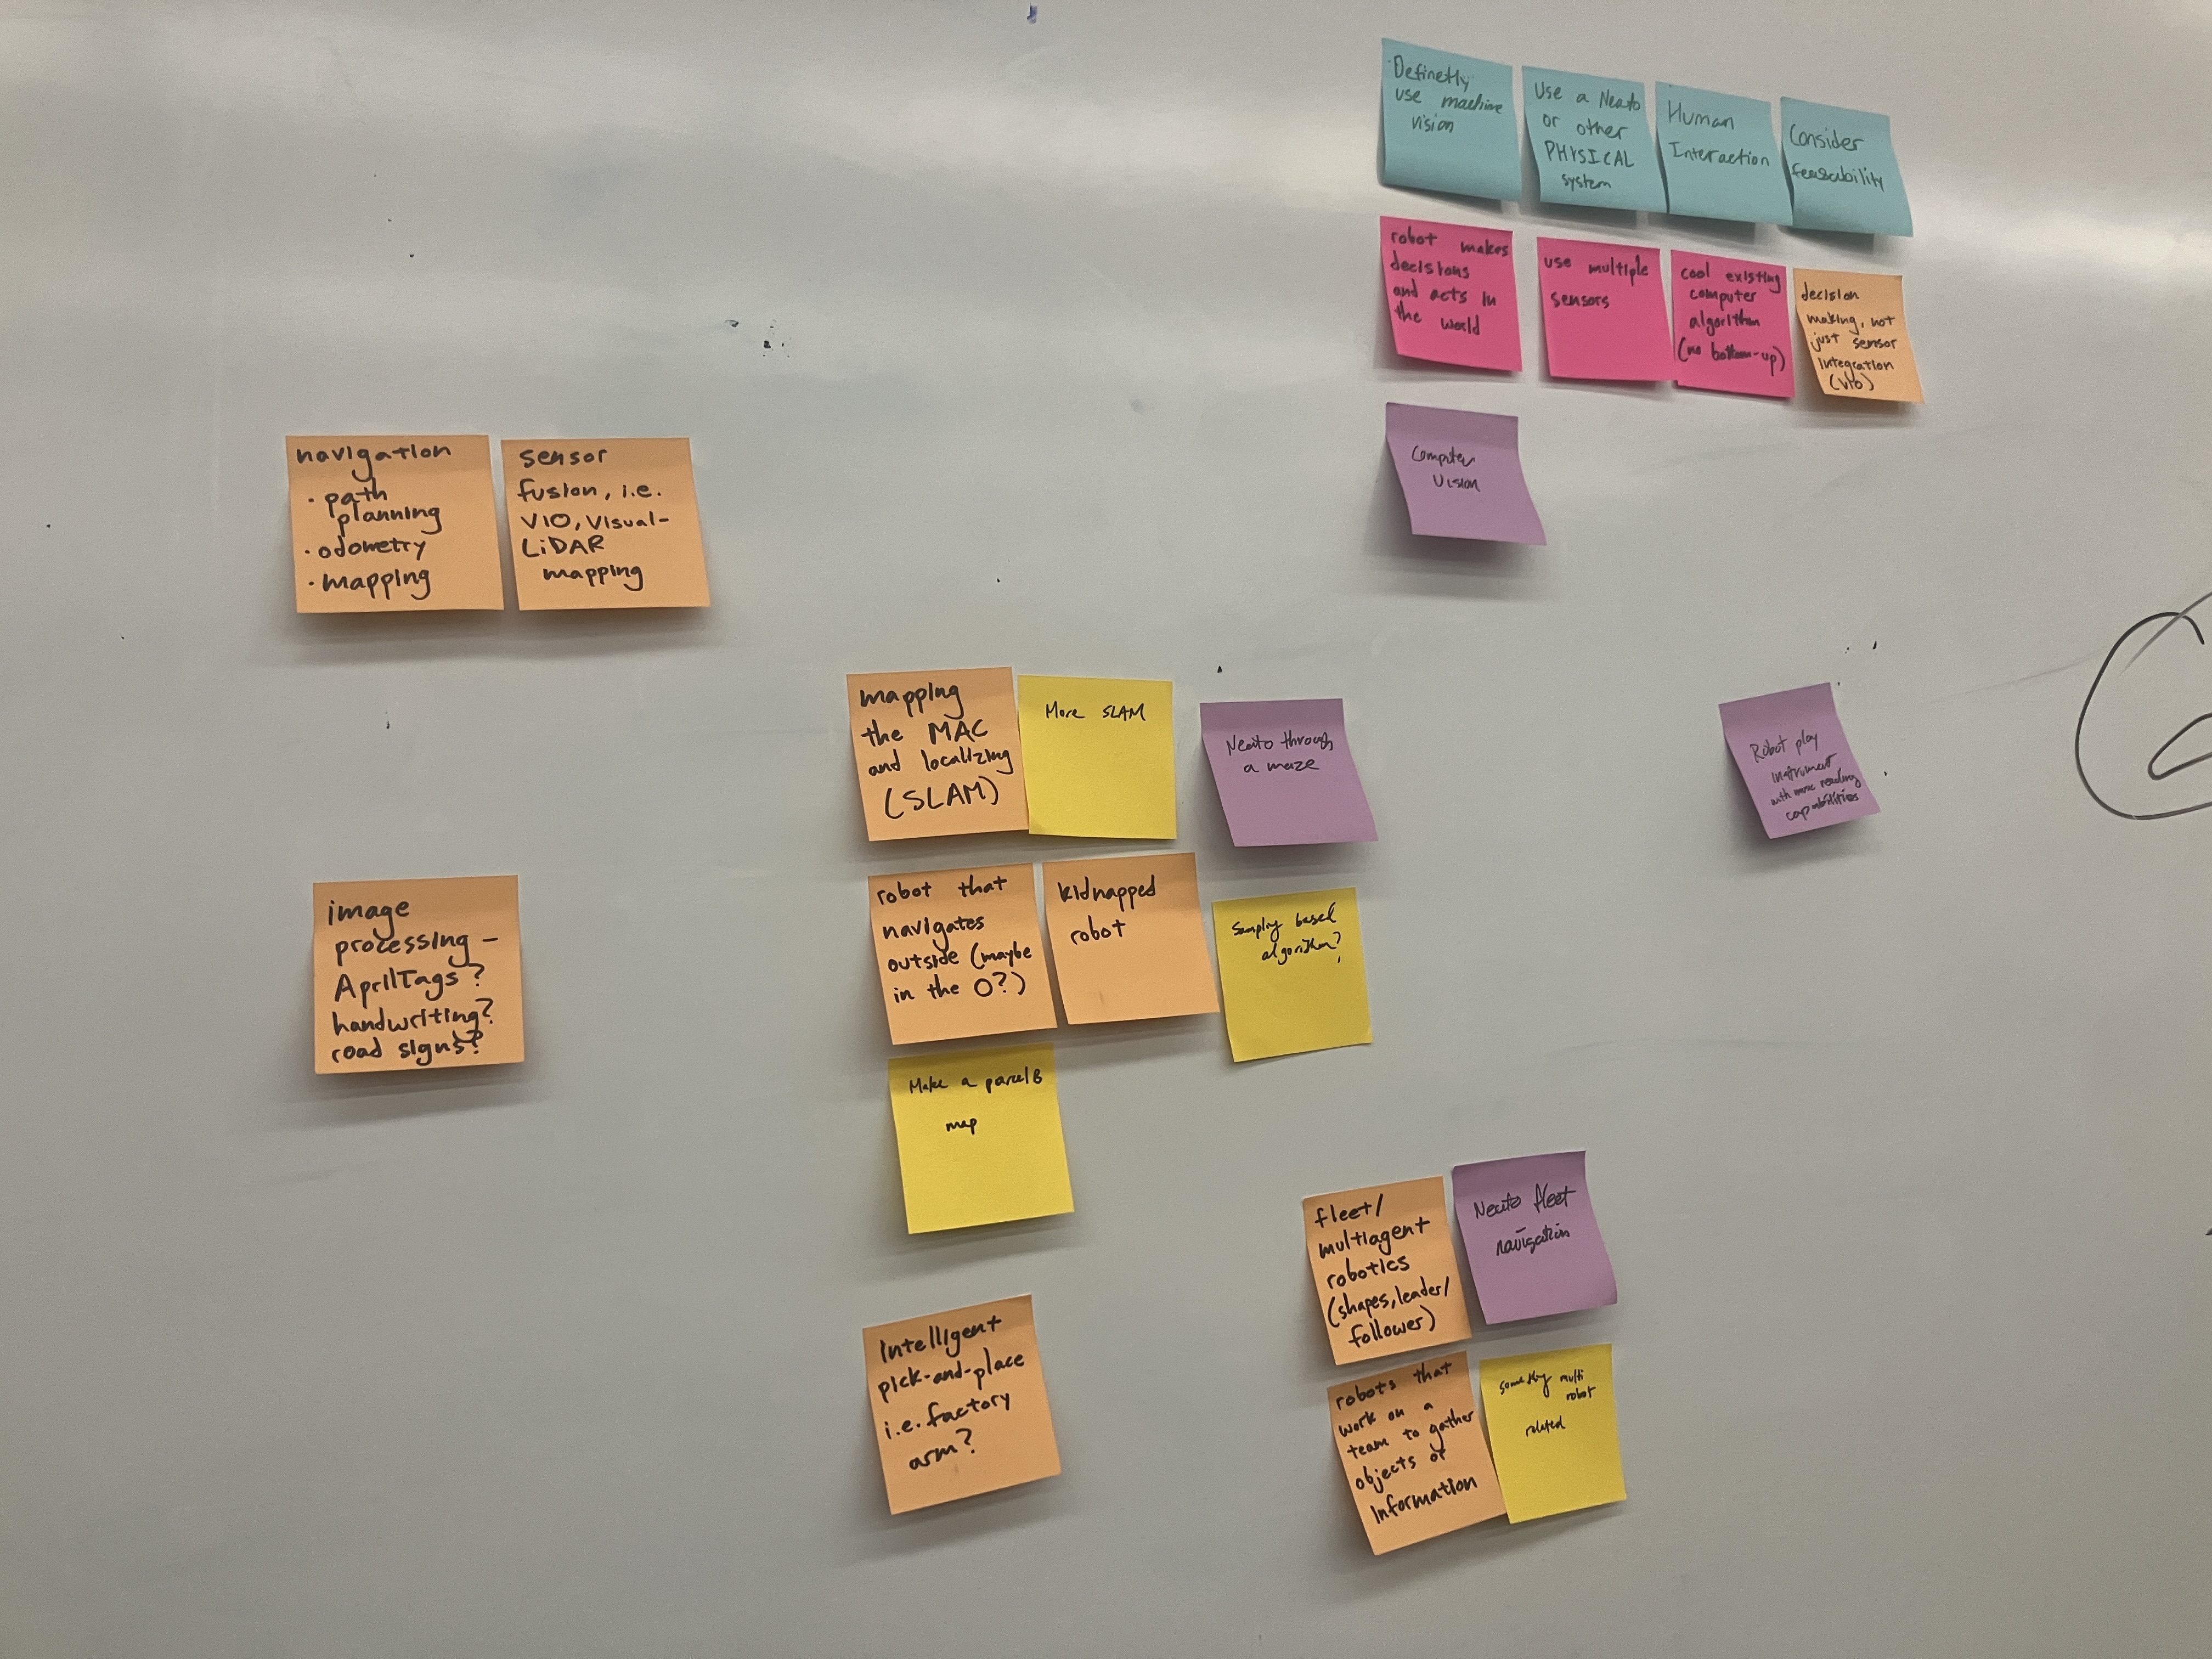 Definetly
use machine
vision
Use a Neato
or other
PHYSICAL
system
Human
Interaction
Consider
feasability
robot makes
decisions
and acts in
the world
use multiple
sensors
cool existing
computer
algorithm
(no bottom-up)
decision
making, not
just sensor
integration
(VIO)
Computer
Vision
navigation
• path
planning
• odometry
• mapping
sensor
fusion, i.e.
VIO, Visual-
LiDAR
mapping
mapping
the MAC
and localizing
(SLAM)
More SLAM
Neato through
a maze
Robot play
instrument
with music reading
capabilities
image
processing -
AprilTags?
handwriting?
road signs?
robot that
navigates
outside (maybe
in the O?)
kidnapped
robot
Sampling based
algorithm?
Make a parcel B
map
fleet/
multiagent
robotics
(shapes, leader/
follower)
Neato fleet
navigation
intelligent
pick-and-place
i.e. factory
arm?
robots that
work on a
team to gather
objects or
information
something multi
robot
related